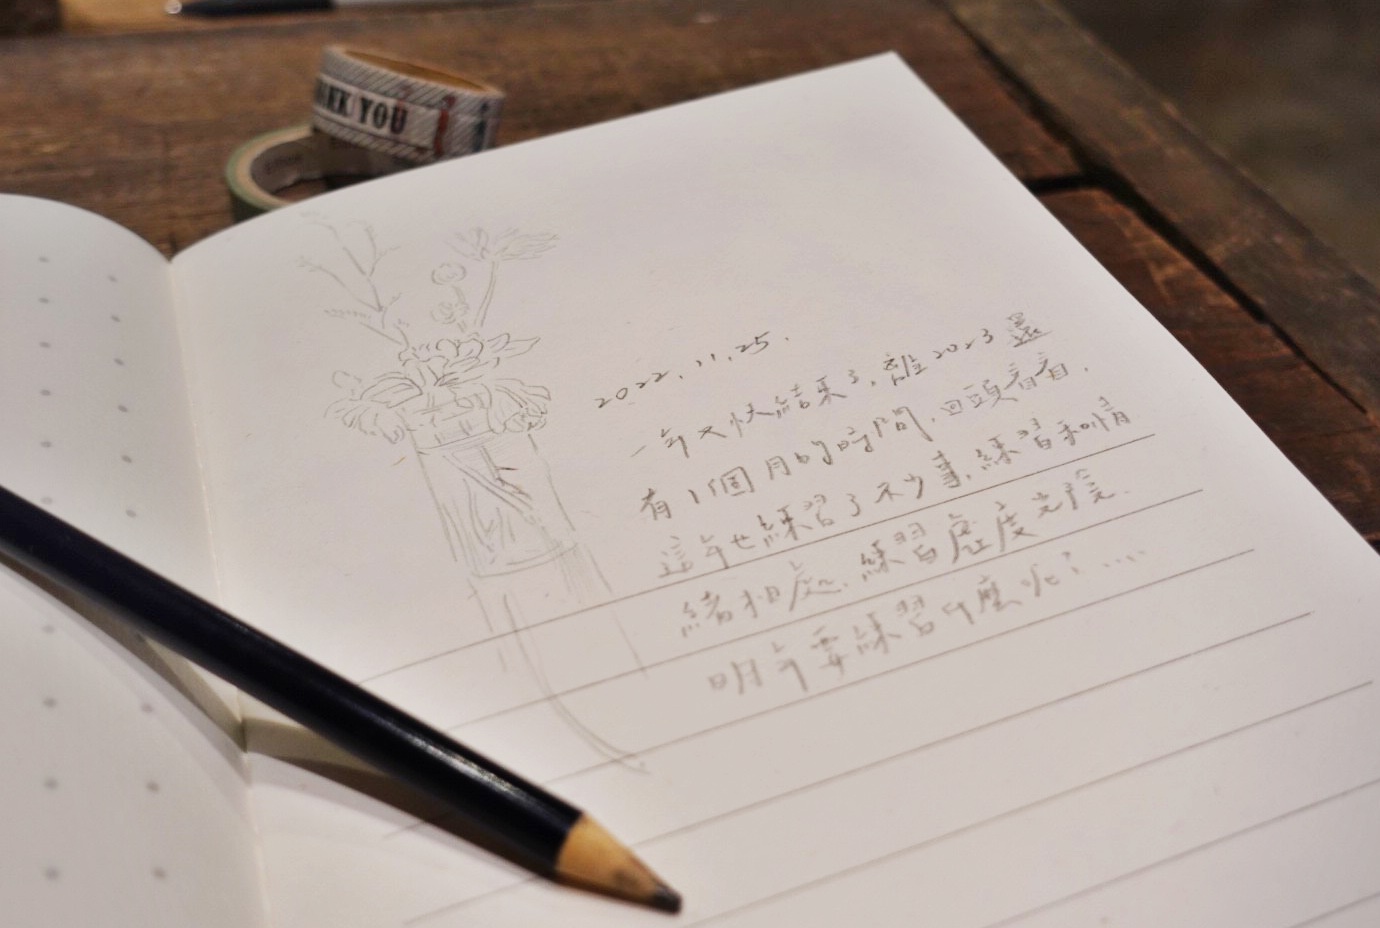 THANK YOU
2022.11.25.
一年又快結束了,離2023還
有1個月的時間,回頭看看,
這年也練習了不少事,練習和情
緒相處,練習虛度光陰.
明年要練習什麼呢?....